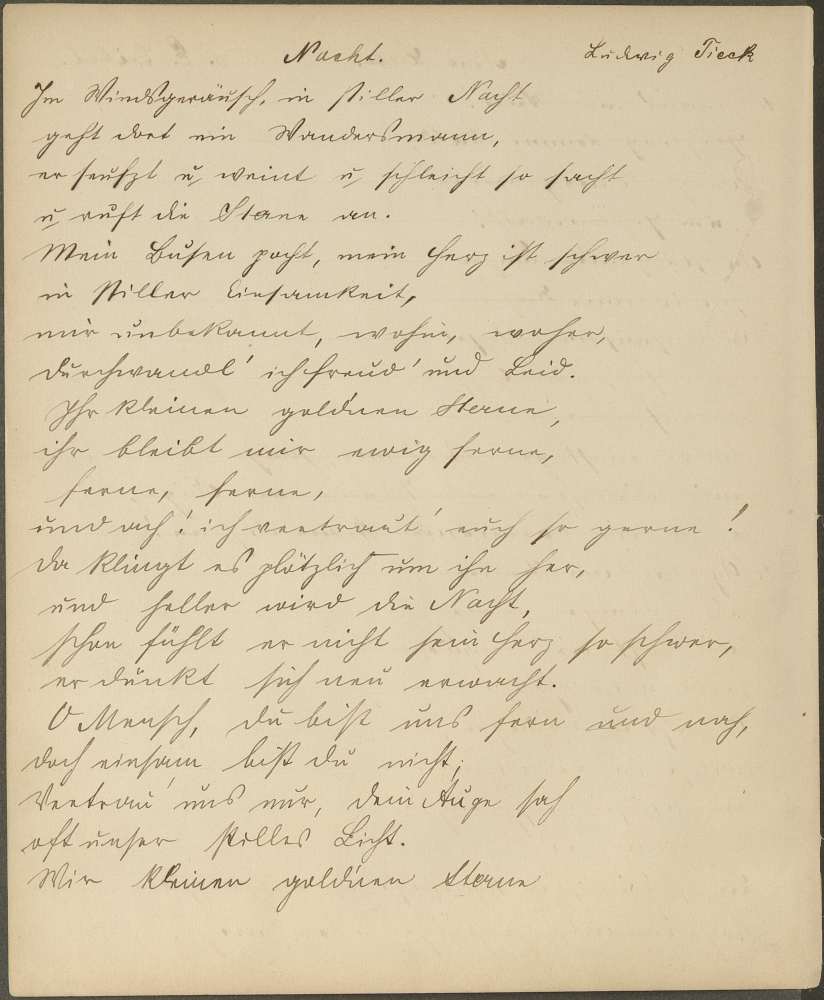 Nacht. Ludwig Tieck
Im Windsgeräusch, in stiller Nacht
geht dort ein Wandersmann,
er seufzt u. weint u. schleicht so sacht
u. ruft die Sterne an.
Mein Busen pocht, mein Herz ist schwer
in stiller Einsamkeit,
mir unbekannt, wohin, woher,
durchwandl' ich Freud' und Leid.
Ihr kleinen gold'nen Sterne,
ihr bleibt mir ewig ferne,
ferne, ferne,
und ach! ich vertraut' euch so gerne!
Da klingt es plötzlich um ihn her,
und heller wird die Nacht,
schon fühlt er nicht sein Herz so schwer,
er dünkt sich neu erwacht.
O Mensch, du bist uns fern und nah,
doch einsam bist du nicht,
Vertrau' uns nur, dein Auge sah
oft unser stilles Licht.
Wir kleinen gold'nen Sterne